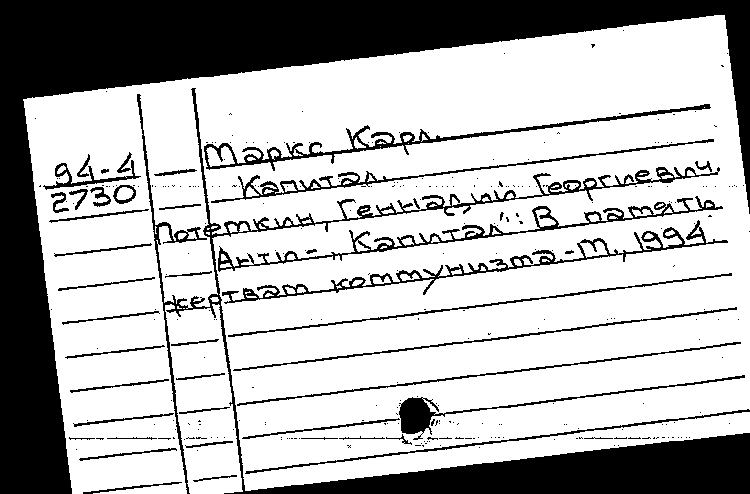 94-4
2730
Маркс, Карл.
Капитал.
Потемкин, Геннадий Георгиевич.
Анти-„Капитал": В память
жертвам коммунизма.-М., 1994.